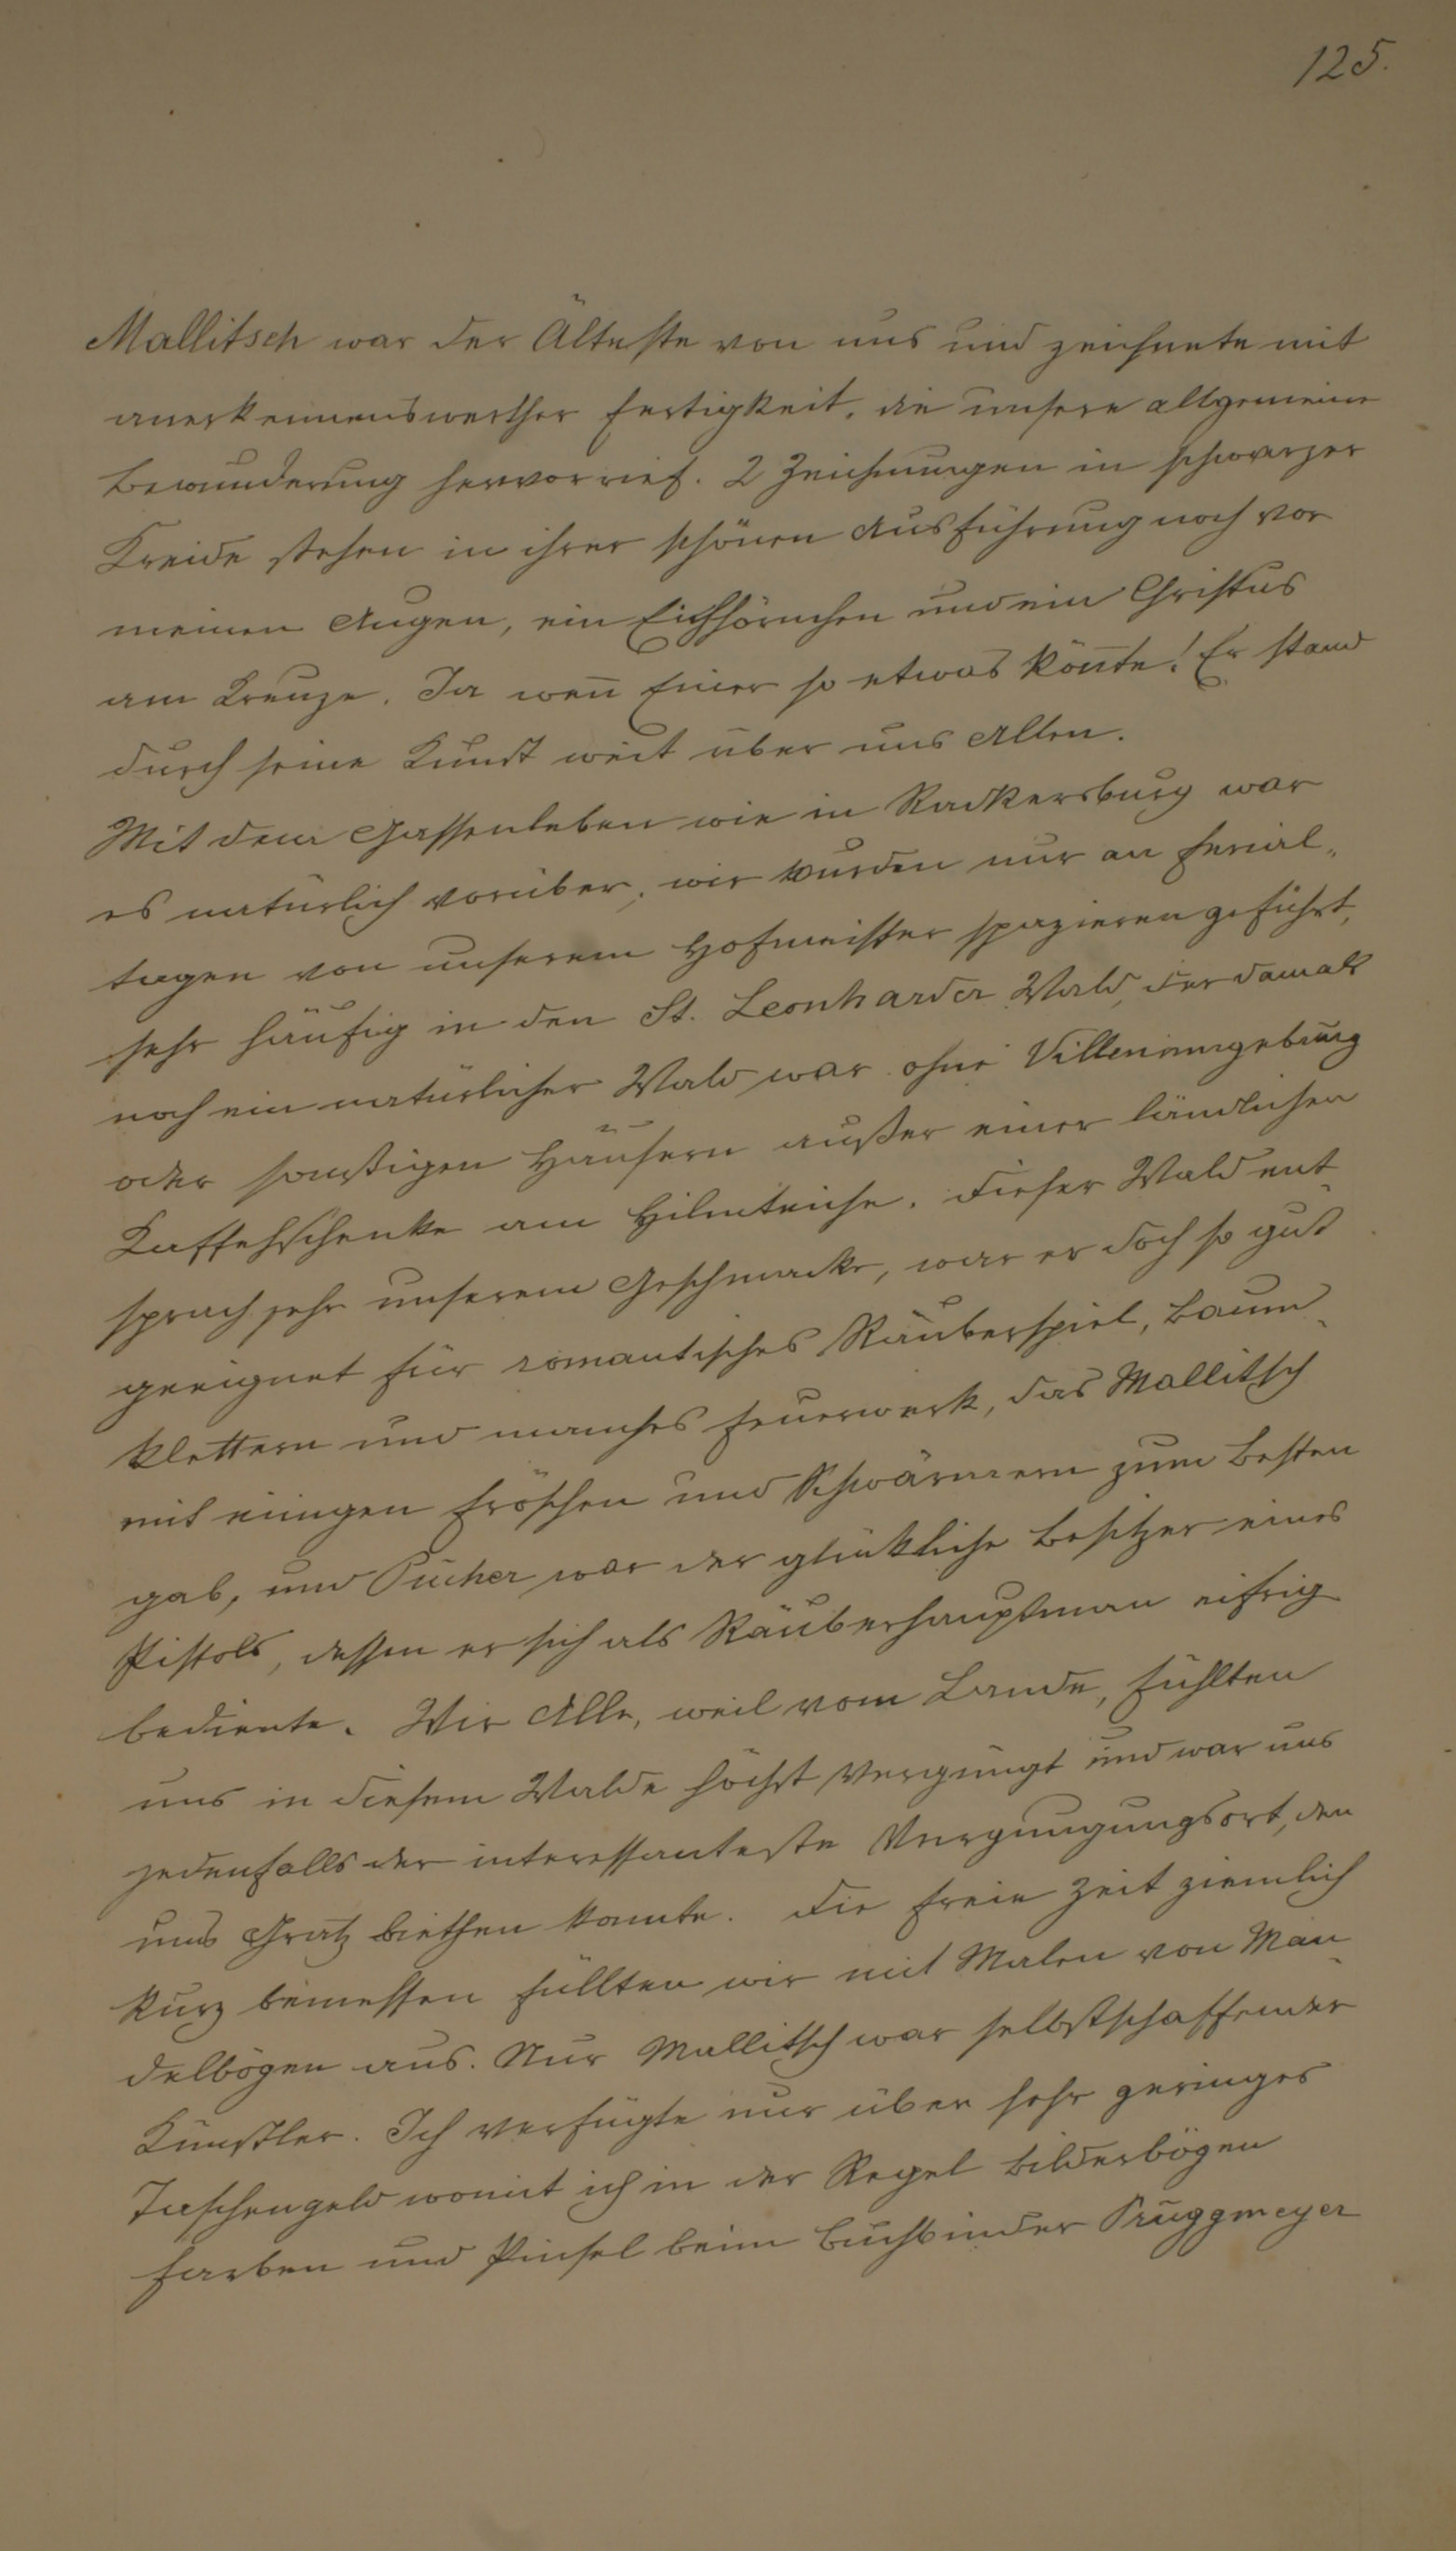 125.
Mallitsch war der Älteste von uns und zeichnete mit
anerkennenswerther Fertigkeit, die unsere allgemeine
Bewunderung hervorrief. 2 Zeichnungen in schwarzer
Kreide stehen in ihrer schönen Ausführung noch vor
meinen Augen, ein Eichhörnchen und ein Christus
am Kreuze. Ja wen̅ Einer so etwas kön̅te! Er stand
durch seine Kunst weit über uns Allen.
Mit dem Gassenleben wie in Radkersburg war
es natürlich vorüber, wir wurden nur an Ferial„
tagen von unserem Hofmeister spazieren geführt,
sehr häufig in den St. Leonharder Wald, der damals
noch ein natürlicher Wald war ohne Villenumgebung
oder sonstigen Häusern außer einer ländlichen
Kaffehschenke am Hilmteiche. Dieser Wald ent¬
sprach sehr unserem Geschmacke, war er doch so gut
geeignet für romantisches Räuberspiel, Baum¬
klettern und manches Feuerwerk, das Mallitsch
mit einigen Fröschen und Schwärmern zum Besten
gab, und Pucher war der glückliche Besitzer eines
Pistols, dessen er sich als Räuberhauptman eifrig
bediente. Wir Alle, weil vom Lande, fühlten
uns in diesem Walde höchst vergnügt und war uns
jedenfalls der interessanteste Vergnügungsort, den
uns Gratz biethen konnte. Die freie Zeit ziemlich
kurz bemessen füllten wir mit Malen von Man¬
delbögen aus. Nur Mallitsch war selbstschaffender
Künstler. Ich verfügte nur über sehr geringes
Taschengeld womit ich in der Regel Bilderbögen
Farben und Pinsel beim Buchbinder Pruggmeyer